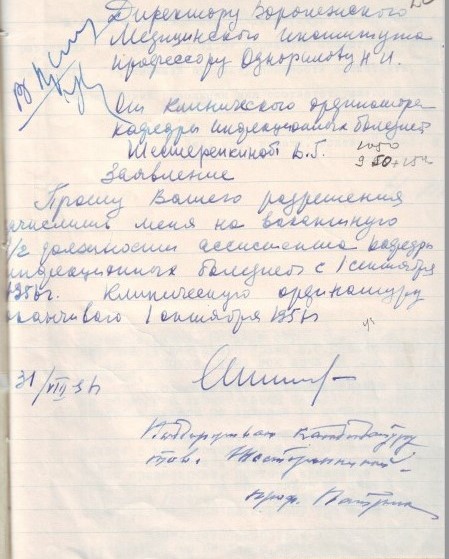 Директору Воронежского
Медицинского института
профессору Одноралову Н.И.
От клинического ординатора
кафедры инфекционных болезней
Шестеренкиной В.Г.
1050
950
Заявление
Прошу Вашего разрешения
зачислить меня на вакантную
1/2 должности ассистента кафедры
инфекционных болезней с 1 сентября
1956г. Клиническую ординатуру
оканчиваю 1 октября 1956г
31/VIII 56
Поддерживаю кандидатуру
тов.
проф.